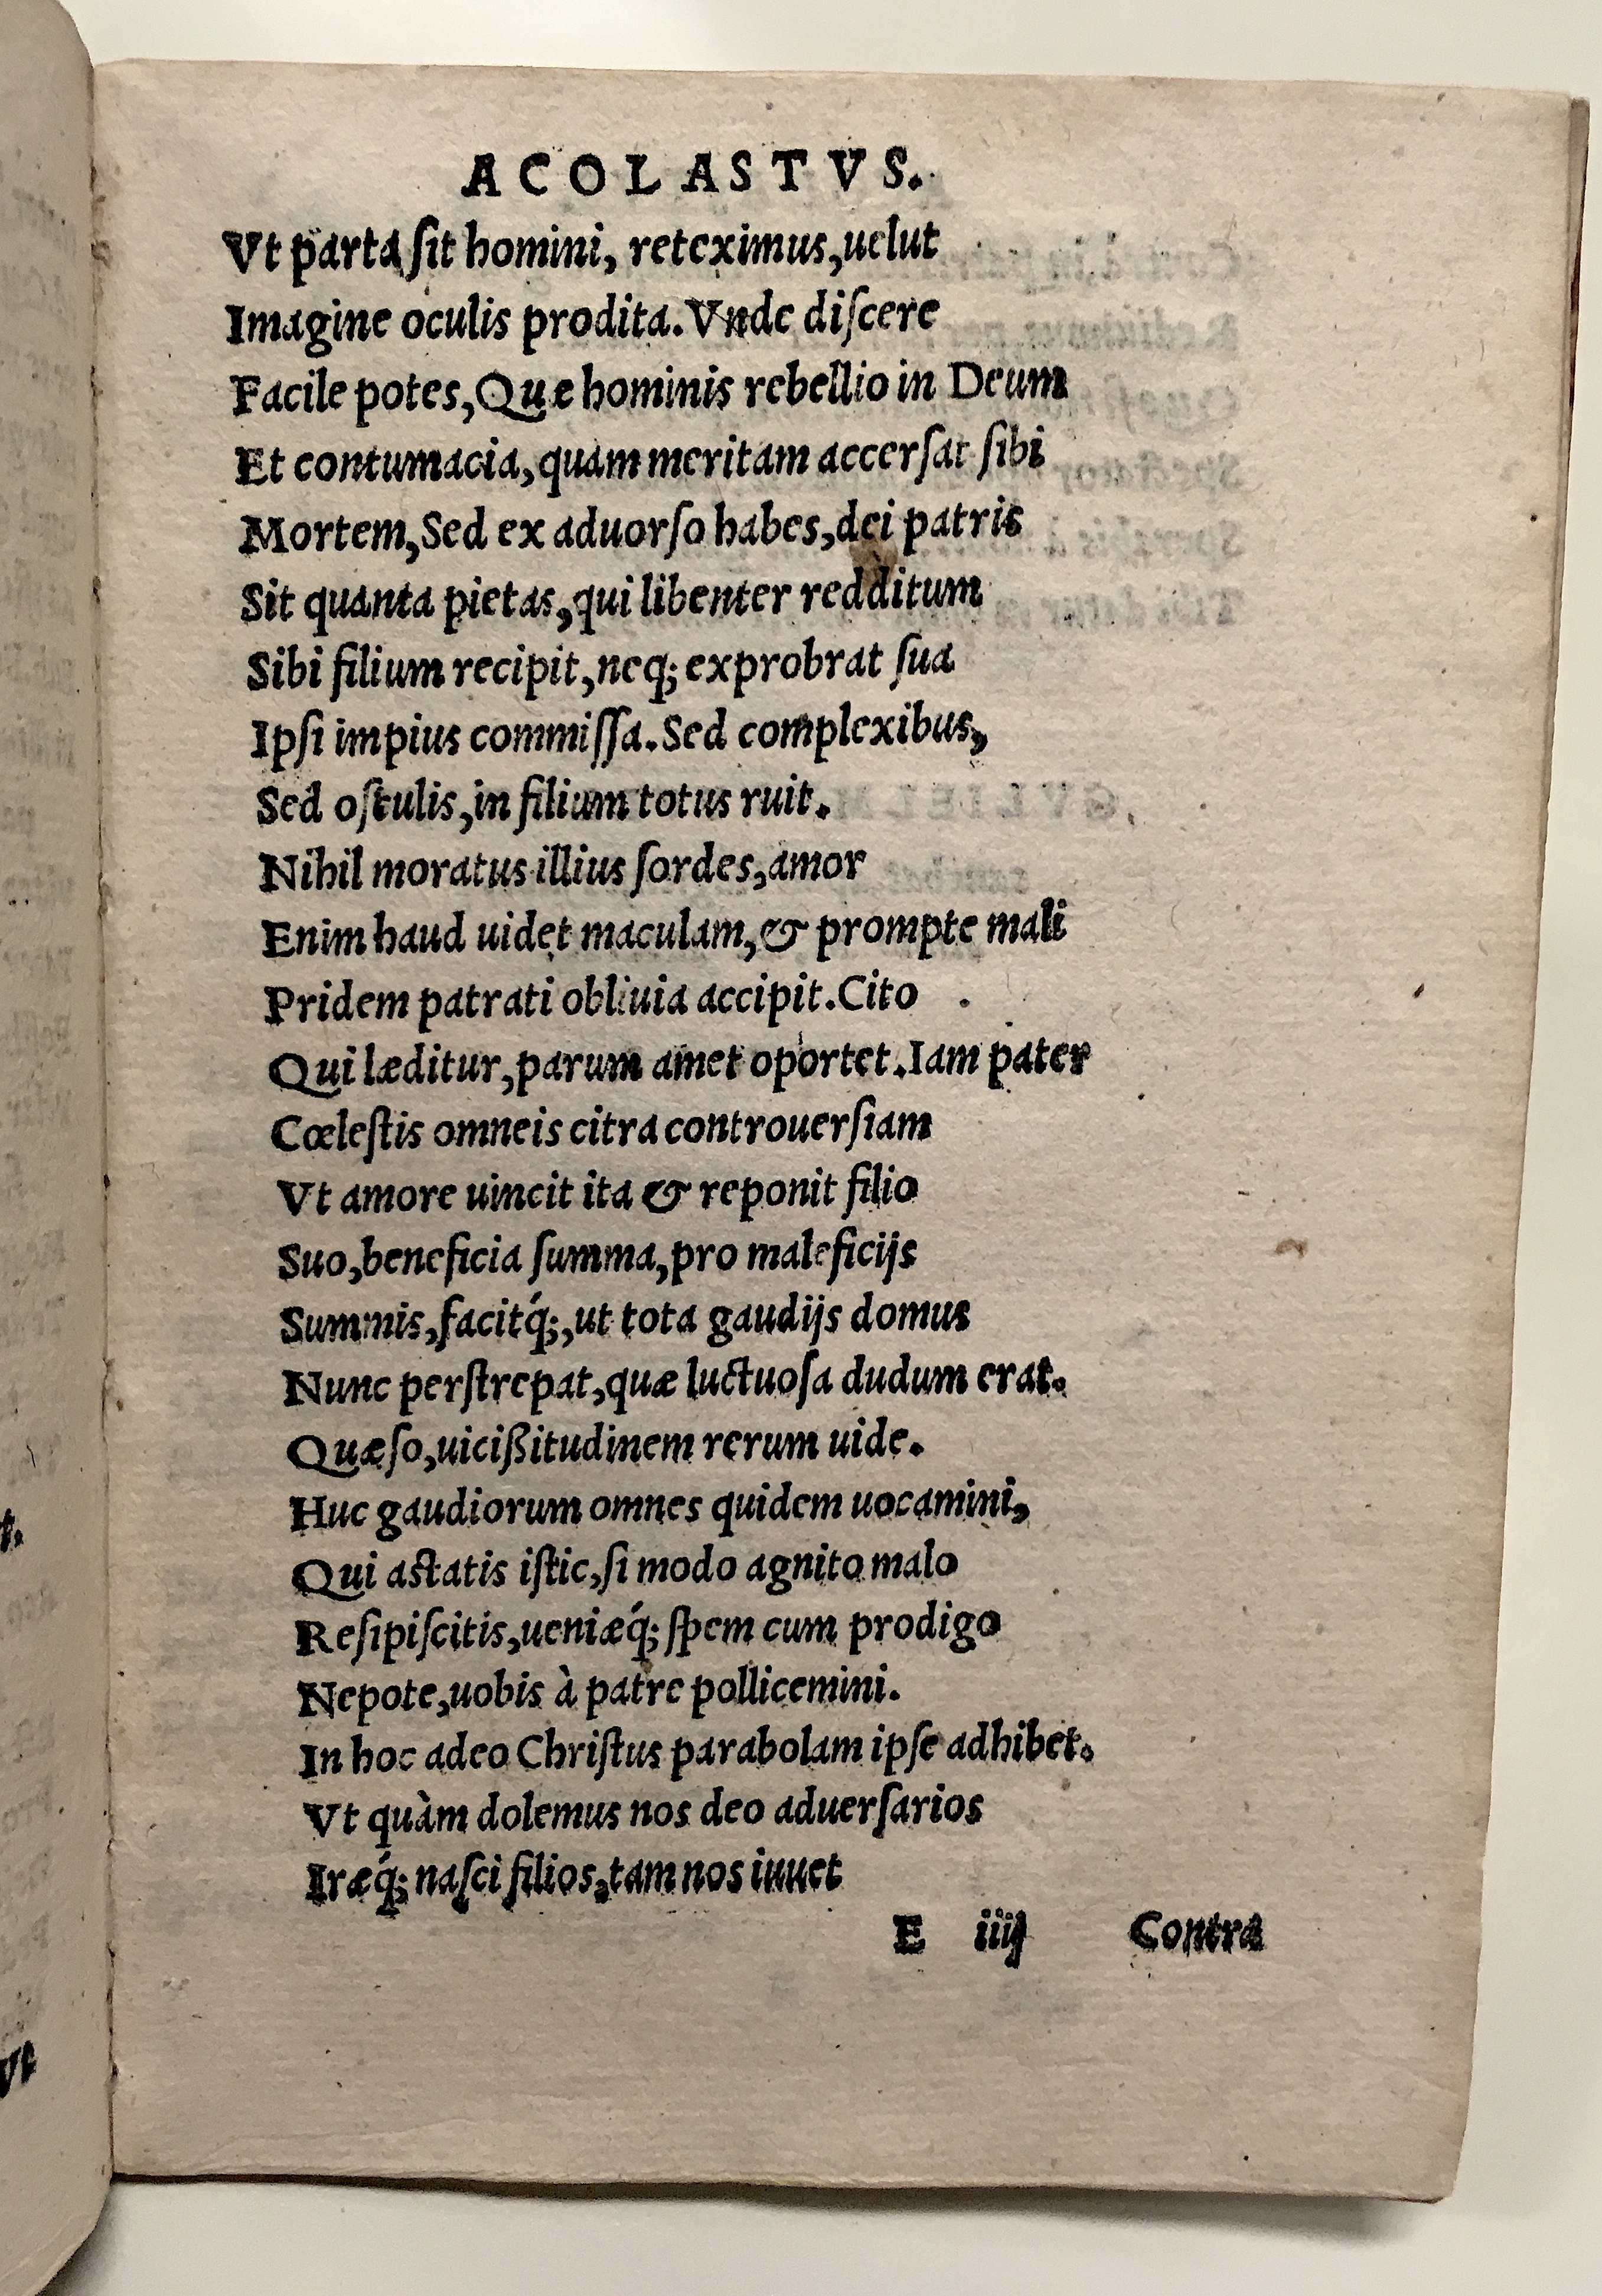 ACOLASTVS.
Vt parta ſit homini, reteximus,uelut
Imagine oculis prodita.Vnde diſcere
Facile potes,Quæ hominis rebellio in Deum
Et contumacia,quam meritam accerſat ſibi
Mortem,Sed ex aduorſo habes,dei patris
Sit quanta pietas,qui libenter redditum
Sibi filium recipit,neq; exprobrat ſua
Ipſi impius commiſſa.Sed complexibus,
Sed oſculis,in filium totus ruit.
Nihil moratus illius ſordes,amor
Enim haud uidet maculam,& prompte mali
Pridem patrati obliuia accipit.Cito
Qui læditur,parum amet oportet.Iam pater
Cœleſtis omneis citra controuerſiam
Vt amore uincit ita & reponit filio
Suo,beneficia ſumma,pro maleficijs
Summis,facitq́;,ut tota gaudijs domus
Nunc perſtrepat,quæ luctuoſa dudum erat.
Quæſo,uicißitudinem rerum uide.
Huc gaudiorum omnes quidem uocamini,
Qui aſtatis iſtic,ſi modo agnito malo
Reſipiſcitis,ueniæq́; ſpem cum prodigo
Nepote,uobis à patre pollicemini.
In hoc adeo Chriſtus parabolam ipſe adhibet.
Vt quàm dolemus nos deo aduerſarios
Iræq́; naſci filios,tam nos iuuet
E iiij Contra